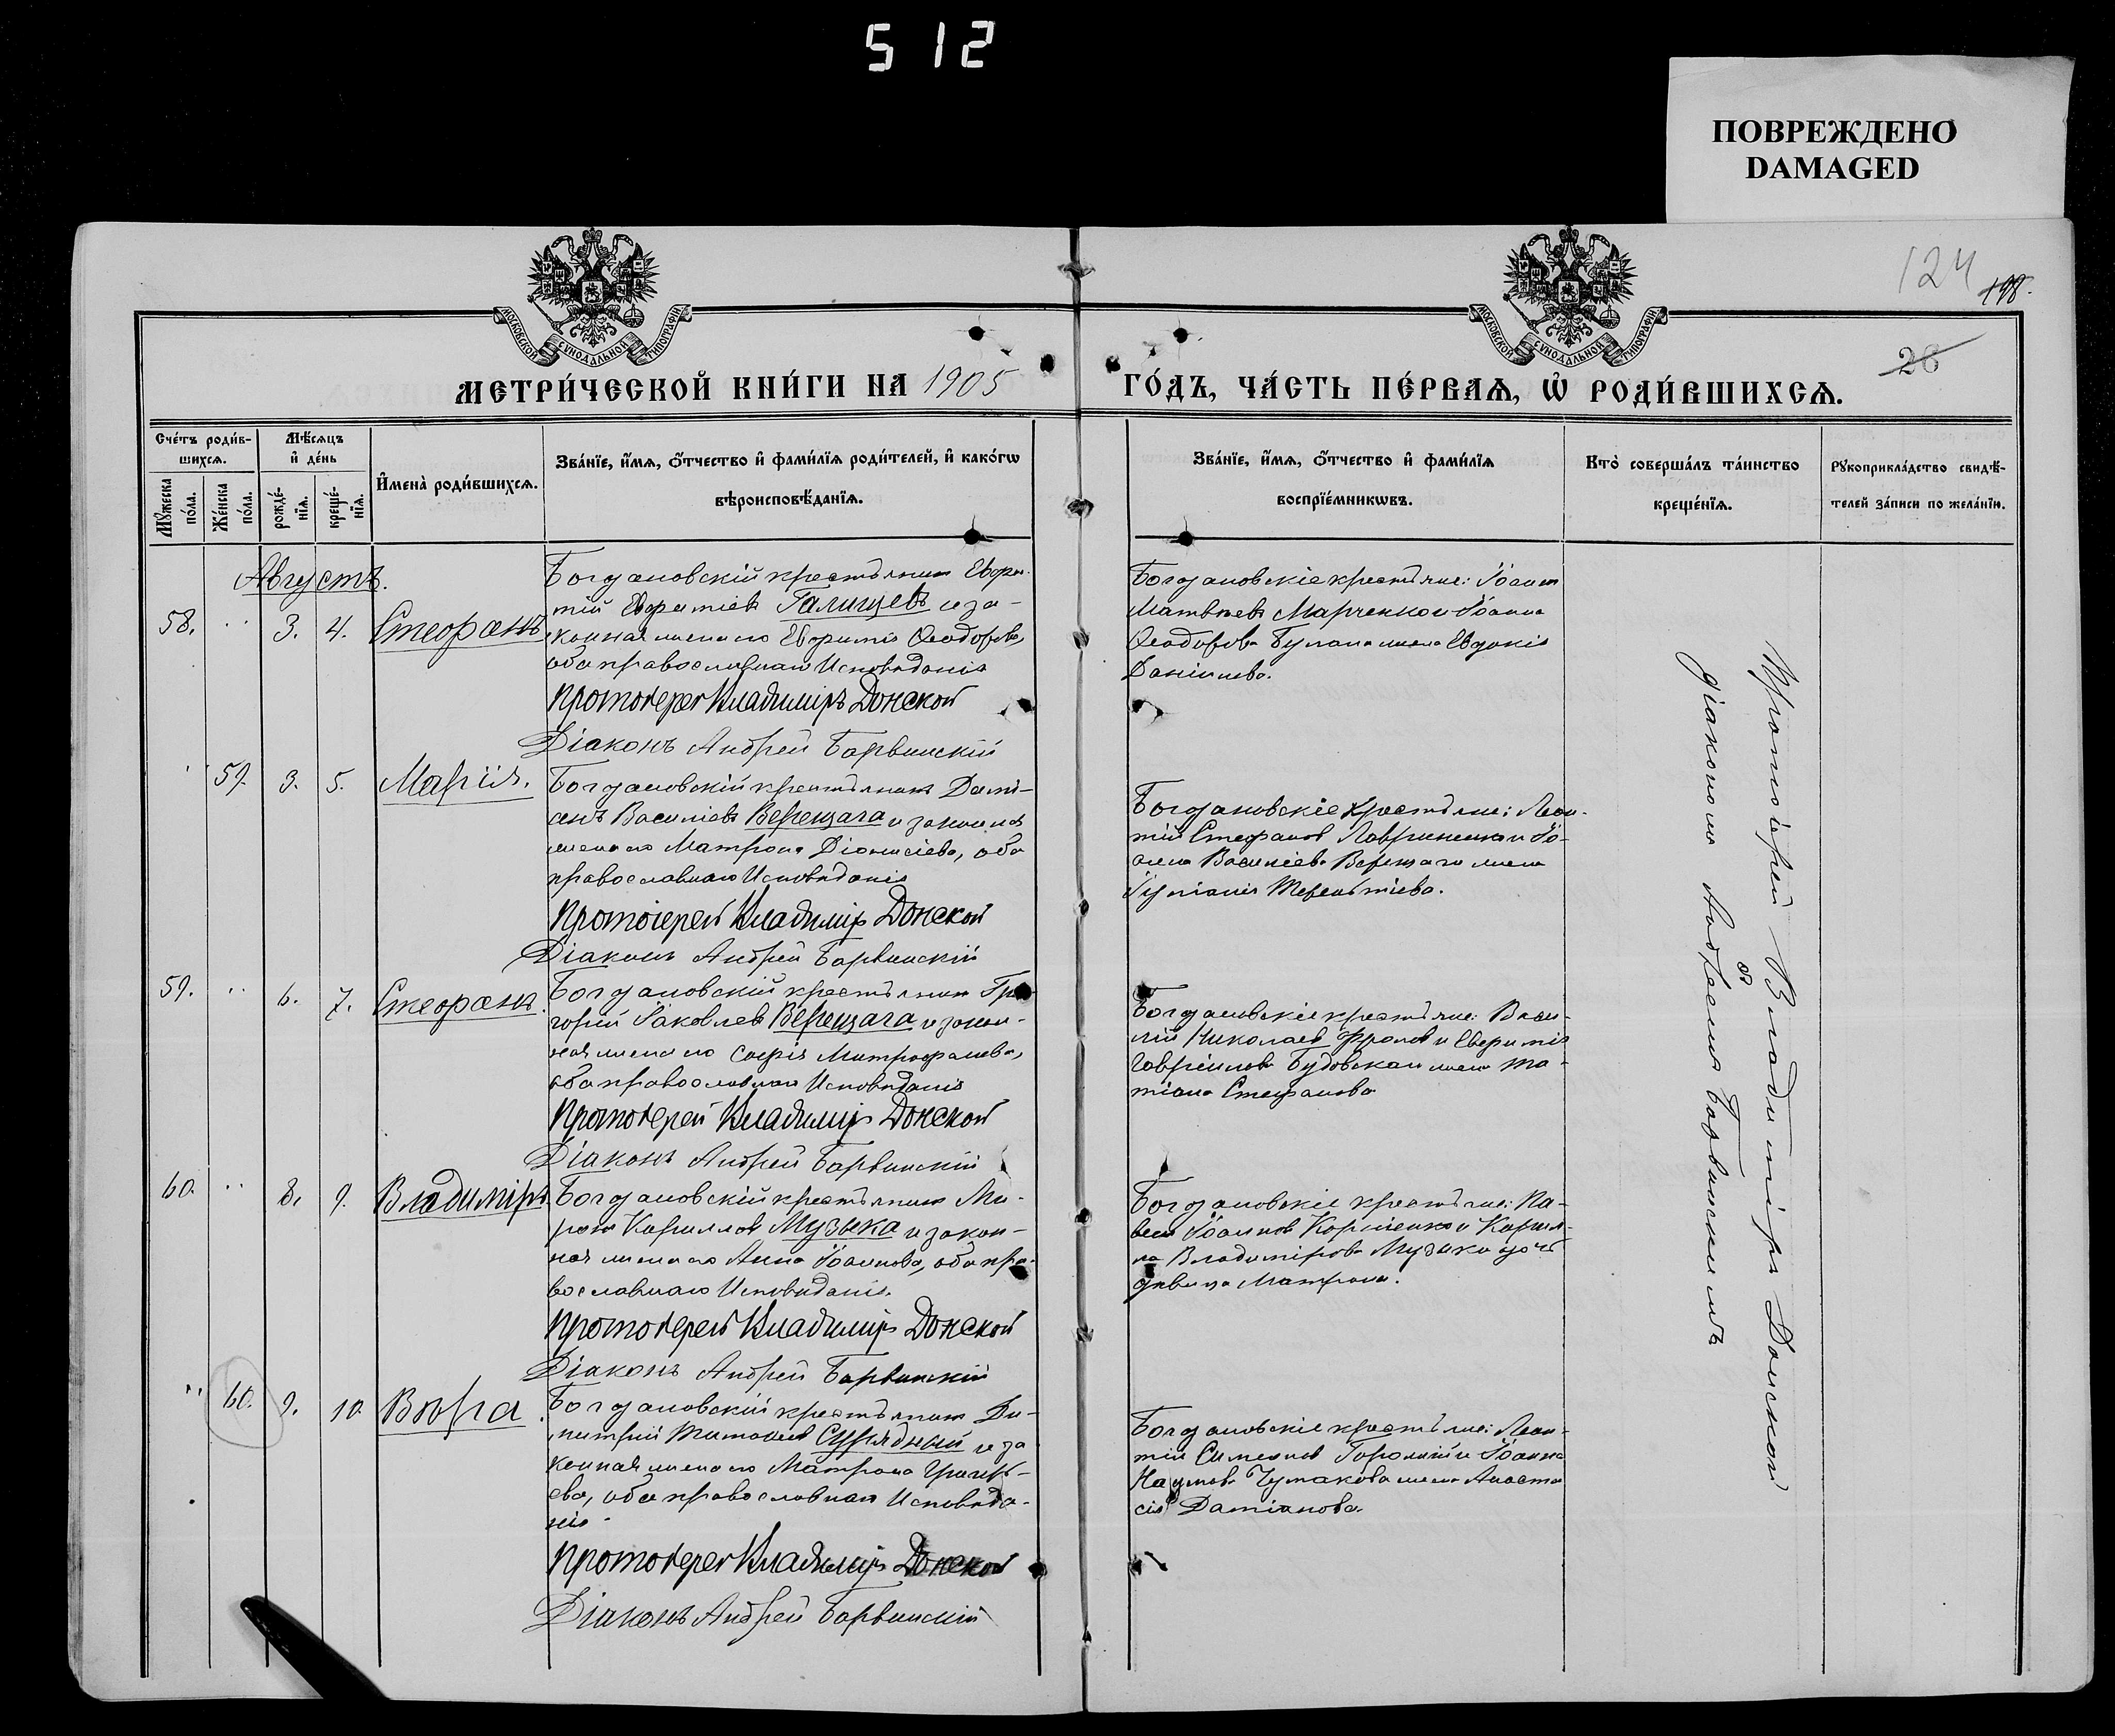 512
ПОВРЕЖДЕНО
DAMAGED
124
198.
26
МОСКОВСКОЙ СѴНОДАЛЬНОЙ ТИПОГРАФІИ
МОСКОВСКОЙ СѴНОДАЛЬНОЙ ТИПОГРАФІИ
МЕТРИ́ЧЕСКОЙ КНИ́ГИ НА 1905 ГО́ДЪ, ЧА́СТЬ ПЕ́РВАѦ, Ѡ҆ РОДИ́ВШИХСѦ.
Сче́тъ роди́в-
шихсѧ.
Мꙋжеска по́ла.
Же́нска по́ла.
Мѣ́сѧцъ
и҆ де́нь
рожде́-
нїѧ.
креще́-
нїѧ.
И҆мена̀ роди́вшихсѧ.
Зва́нїе, и҆́мѧ, ѻ҆́тчество и҆ фами́лїѧ роди́телей, и҆ како́гѡ
вѣроисповѣ́данїѧ.
Зва́нїе, и҆́мѧ, ѻ҆́тчество и҆ фами́лїѧ
воспрїе́мникѡвъ.
Кто̀ соверша́лъ та́инство
креще́нїѧ.
Рꙋкоприкла́дство свидѣ́-
телей за́писи по жела́нїю.
Августъ.
58. " 3. 4. Стефанъ
Богдановскій крестьянинъ Евфи-
мій Евфиміевъ Галищевъ и за-
конная жена его Евфимія Ѳеодорова,
оба православнаго Исповѣданія
Протоіерей Владиміръ Донской
Діаконъ Андрей Барвинскій
Богдановскіе крестьяне: Іоаннъ
Матвѣевъ Марченко и Іоанна
Ѳеодорова Булана жена Евдокія
Даніилова.
" 59. 3. 5. Марія.
Богдановскій крестьянинъ Дамі-
анъ Василіевъ Верещага и законная
жена его Матрона Діонисіева, оба
православнаго Исповѣданія
Протоіерей Владиміръ Донской
Діаконъ Андрей Барвинскій
Богдановскіе крестьяне: Леон-
тій Стефановъ Лавриненко и Іо-
анна Василіева Верещаги жена
Іуліанія Терентіева.
59. " 6. 7. Стефанъ.
Богдановскій крестьянинъ Гри-
горій Іаковлевъ Верещага и закон-
ная жена его Софія Митрофанова,
оба православнаго Исповѣданія
Протоіерей Владиміръ Донской
Діаконъ Андрей Барвинскій
Богдановскіе крестьяне: Васи-
лій Николаевъ Фроловъ и Евфимія
Гавріилова Будовскаи жена Та-
тіана Стефанова
60. " 8. 9. Владиміръ
Богдановскій крестьянинъ Ми-
ронъ Кирилловъ Музыка и закон-
ная жена его Анна Іоаннова, оба пра-
вославнаго Исповѣданія.
Протоіерей Владиміръ Донской
Діаконъ Андрей Барвинскій
Богдановскіе крестьяне: Па-
велъ Іоанновъ Корніенко и Кирил-
ла Владимірова Музыки дочь
дѣвица Матрона.
" 60. 9. 10. Вѣра.
Богдановскій крестьянинъ Ди-
митрій Тимоѳеевъ Сурядный и за
конная жена его Матрона Григорі-
ева, оба православнаго Исповѣда-
нія.
Протоіерей Владиміръ Донской
Діаконъ Андрей Барвинскій
Богдановскіе крестьяне: Леон-
тій Симеоновъ Горолій и Іоанна
Наумова Чумакова жена Анаста
сія Даміанова.
Протоіерей Владиміръ Донской
съ
діакономъ Андреемъ Барвинскимъ